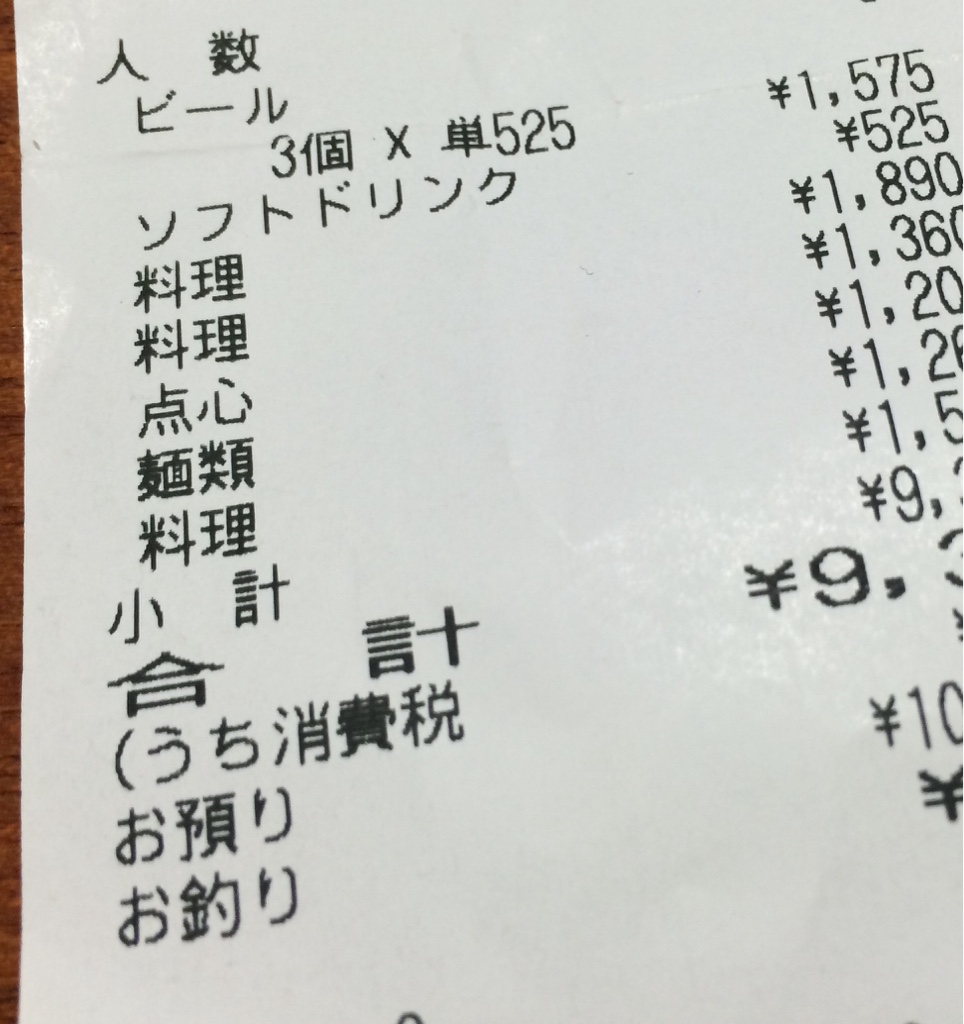 人 数
ビール
3個 X 単525 ¥1,575
ソフトドリンク ¥525
料理 ¥1,890
料理 ¥1,360
点心 ¥1,20
麺類 ¥1,2
料理 ¥1,5
小 計 ¥9,
合 計 ¥9,3
(うち消費税 ¥
お預り ¥10
お釣り ¥